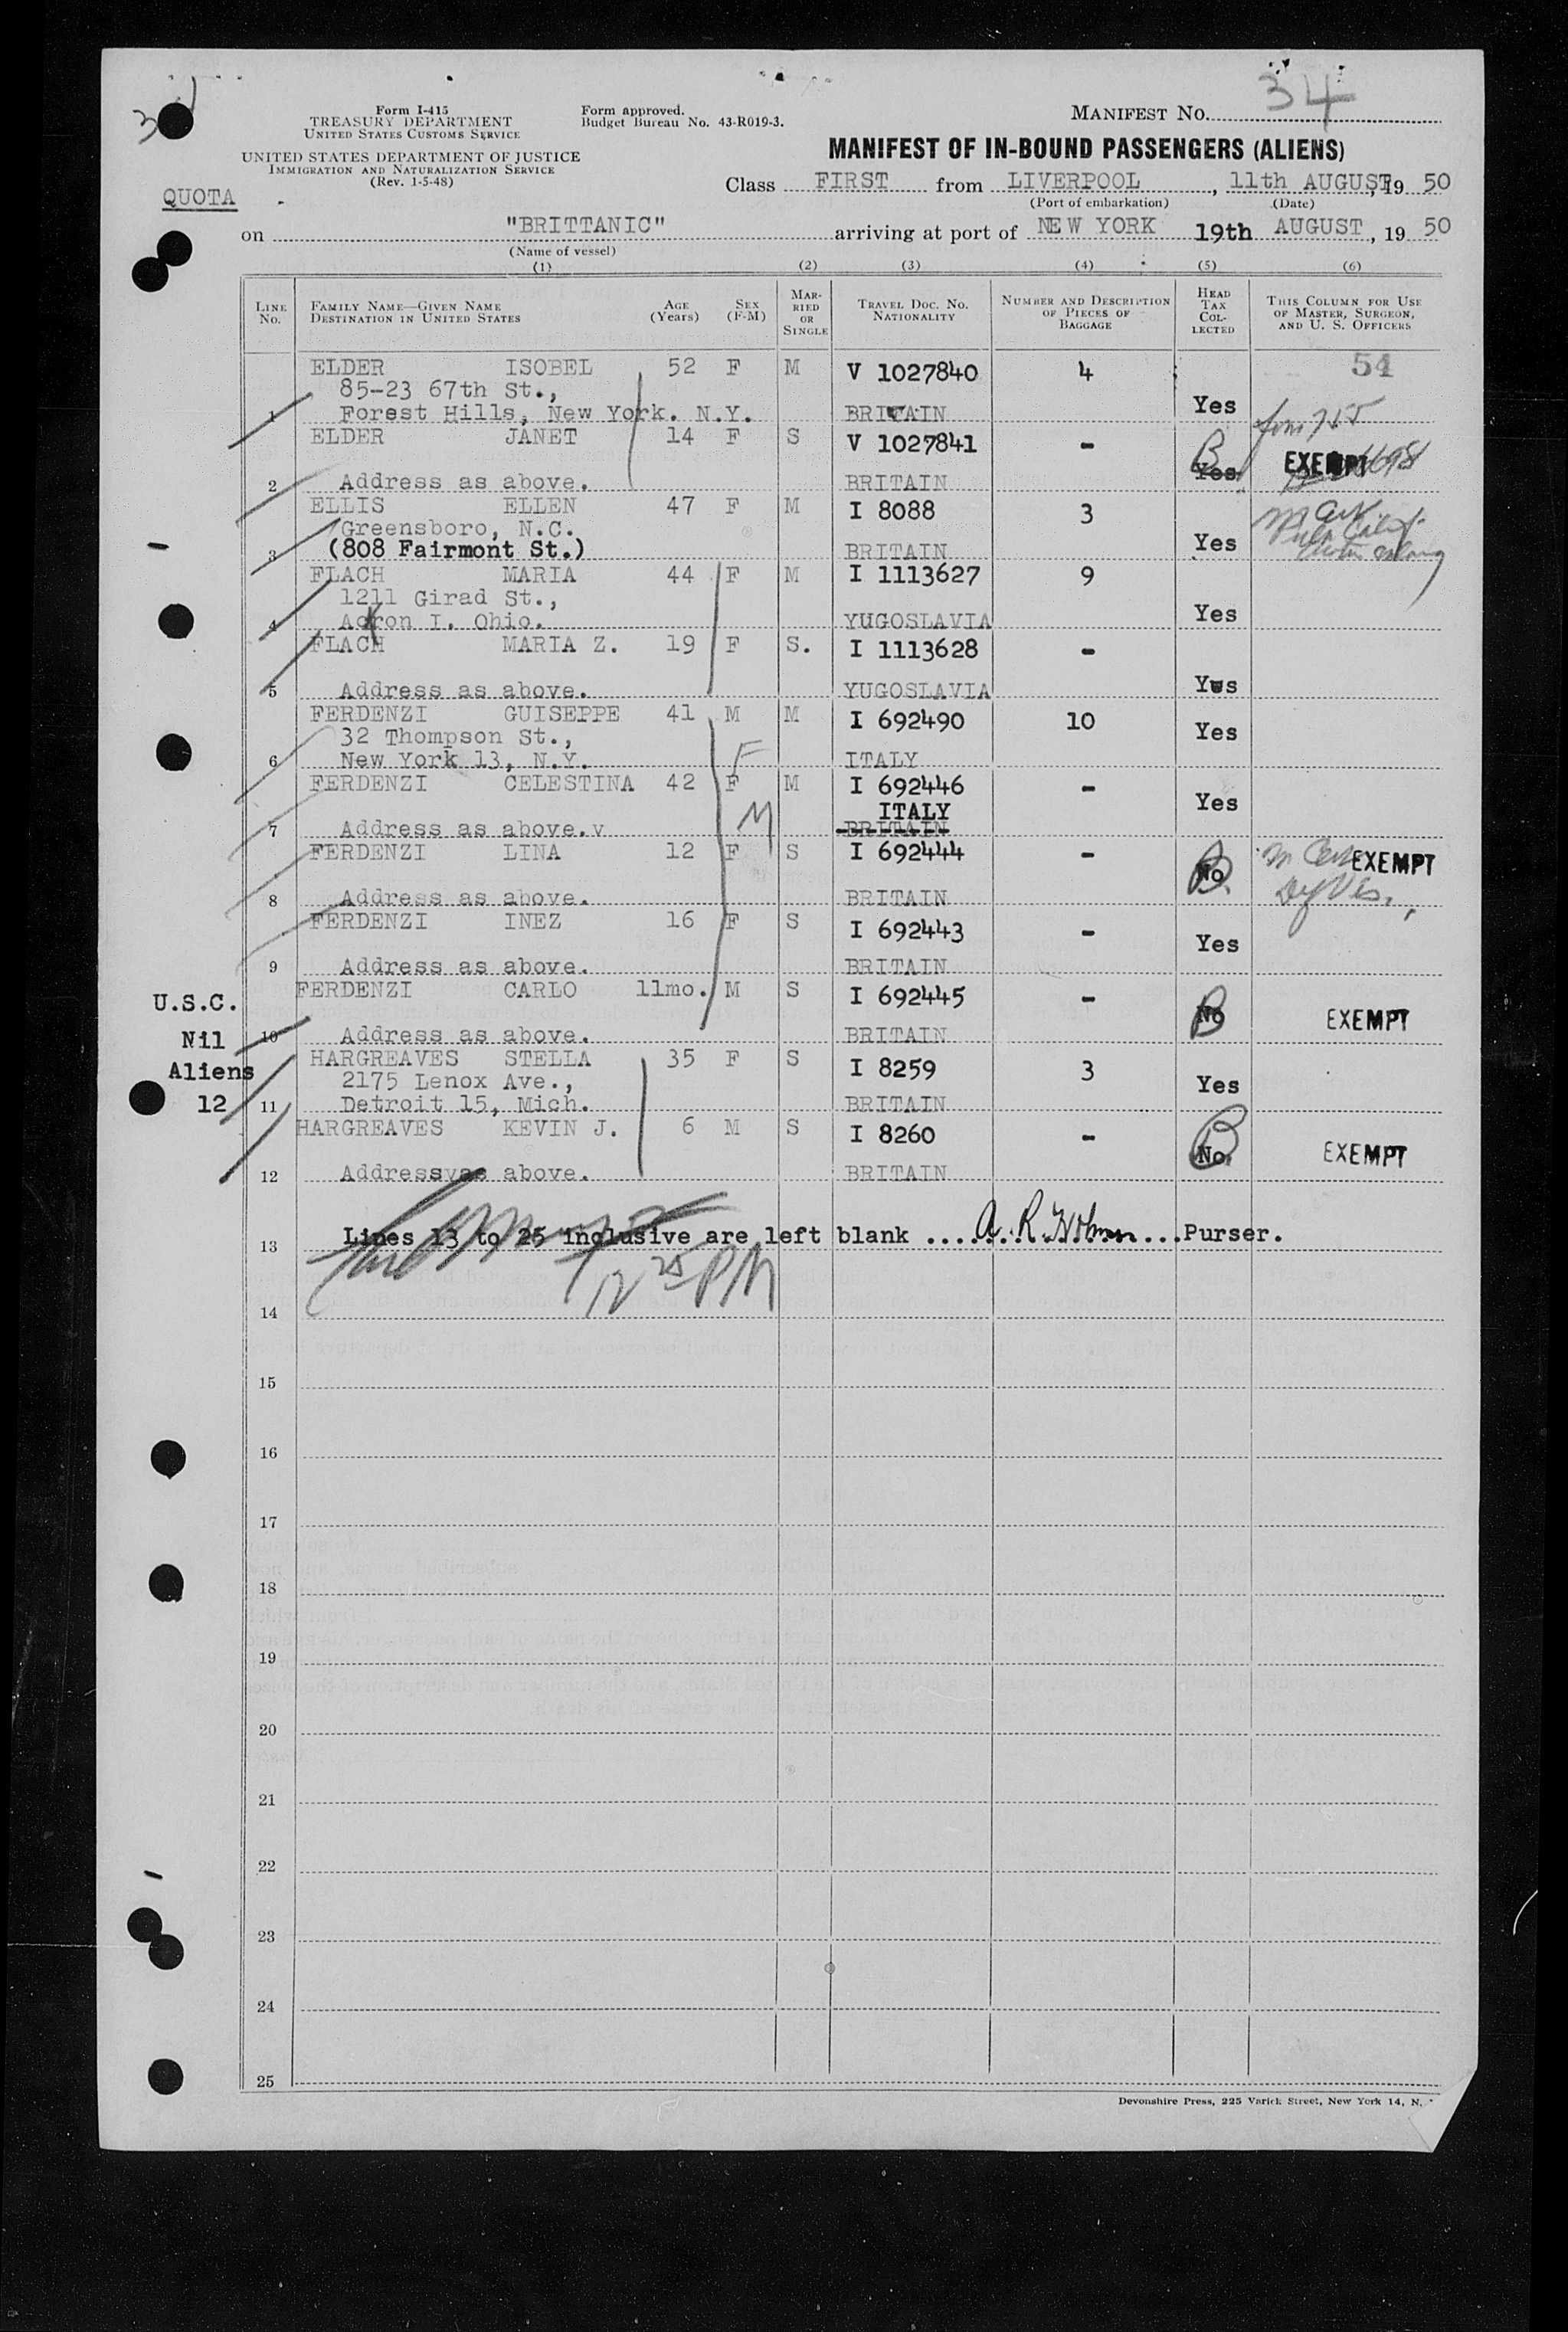 34
Form I-415
TREASURY DEPARTMENT
UNITED STATES CUSTOMS SERVICE
Form approved.
Budget Bureau No. 43-R019-3.
MANIFEST NO. 34
UNITED STATES DEPARTMENT OF JUSTICE
IMMIGRATION AND NATURALIZATION SERVICE
(Rev. 1-5-48)
MANIFEST OF IN-BOUND PASSENGERS (ALIENS)
QUOTA
Class FIRST from LIVERPOOL, 11th AUGUST, 19 50
(Port of embarkation) (Date)
on "BRITTANIC" arriving at port of NEW YORK 19th AUGUST, 19 50
(Name of vessel)
(1) (2) (3) (4) (5) (6)
LINE NO. FAMILY NAME—GIVEN NAME DESTINATION IN UNITED STATES AGE (Years) SEX (F-M) MARRIED OR SINGLE TRAVEL DOC. NO. NATIONALITY NUMBER AND DESCRIPTION OF PIECES OF BAGGAGE HEAD TAX COLLECTED THIS COLUMN FOR USE OF MASTER, SURGEON, AND U. S. OFFICERS
ELDER ISOBEL 52 F M V 1027840 4 54
85-23 67th St.,
1 Forest Hills, New York. N.Y. BRITAIN Yes
ELDER JANET 14 F S V 1027841 -
B Yes EXEMPT
2 Address as above. BRITAIN
ELLIS ELLEN 47 F M I 8088 3
Greensboro, N.C.
3 (808 Fairmont St.) BRITAIN Yes
FLACH MARIA 44 F M I 1113627 9
1211 Girad St.,
4 Ackron I. Ohio. YUGOSLAVIA Yes
FLACH MARIA Z. 19 F S. I 1113628 -
5 Address as above. YUGOSLAVIA Yes
FERDENZI GUISEPPE 41 M M I 692490 10 Yes
32 Thompson St.,
6 New York 13, N.Y. F ITALY
FERDENZI CELESTINA 42 F M I 692446 - Yes
M ITALY
7 Address as above.v BRITAIN
FERDENZI LINA 12 F S I 692444 - No EXEMPT
8 Address as above. BRITAIN
FERDENZI INEZ 16 F S I 692443 - Yes
9 Address as above. BRITAIN
FERDENZI CARLO 11mo. M S I 692445 - B No EXEMPT
10 Address as above. BRITAIN
HARGREAVES STELLA 35 F S I 8259 3 Yes
2175 Lenox Ave.,
11 Detroit 15, Mich. BRITAIN
HARGREAVES KEVIN J. 6 M S I 8260 - B No. EXEMPT
12 Addressvas above. BRITAIN
U.S.C.
Nil
Aliens
12
13 Lines 13 to 25 inclusive are left blank ....A. R. Holman...Purser.
12 25 PM
14
15
16
17
18
19
20
21
22
23
24
25
Devonshire Press, 225 Varick Street, New York 14, N.